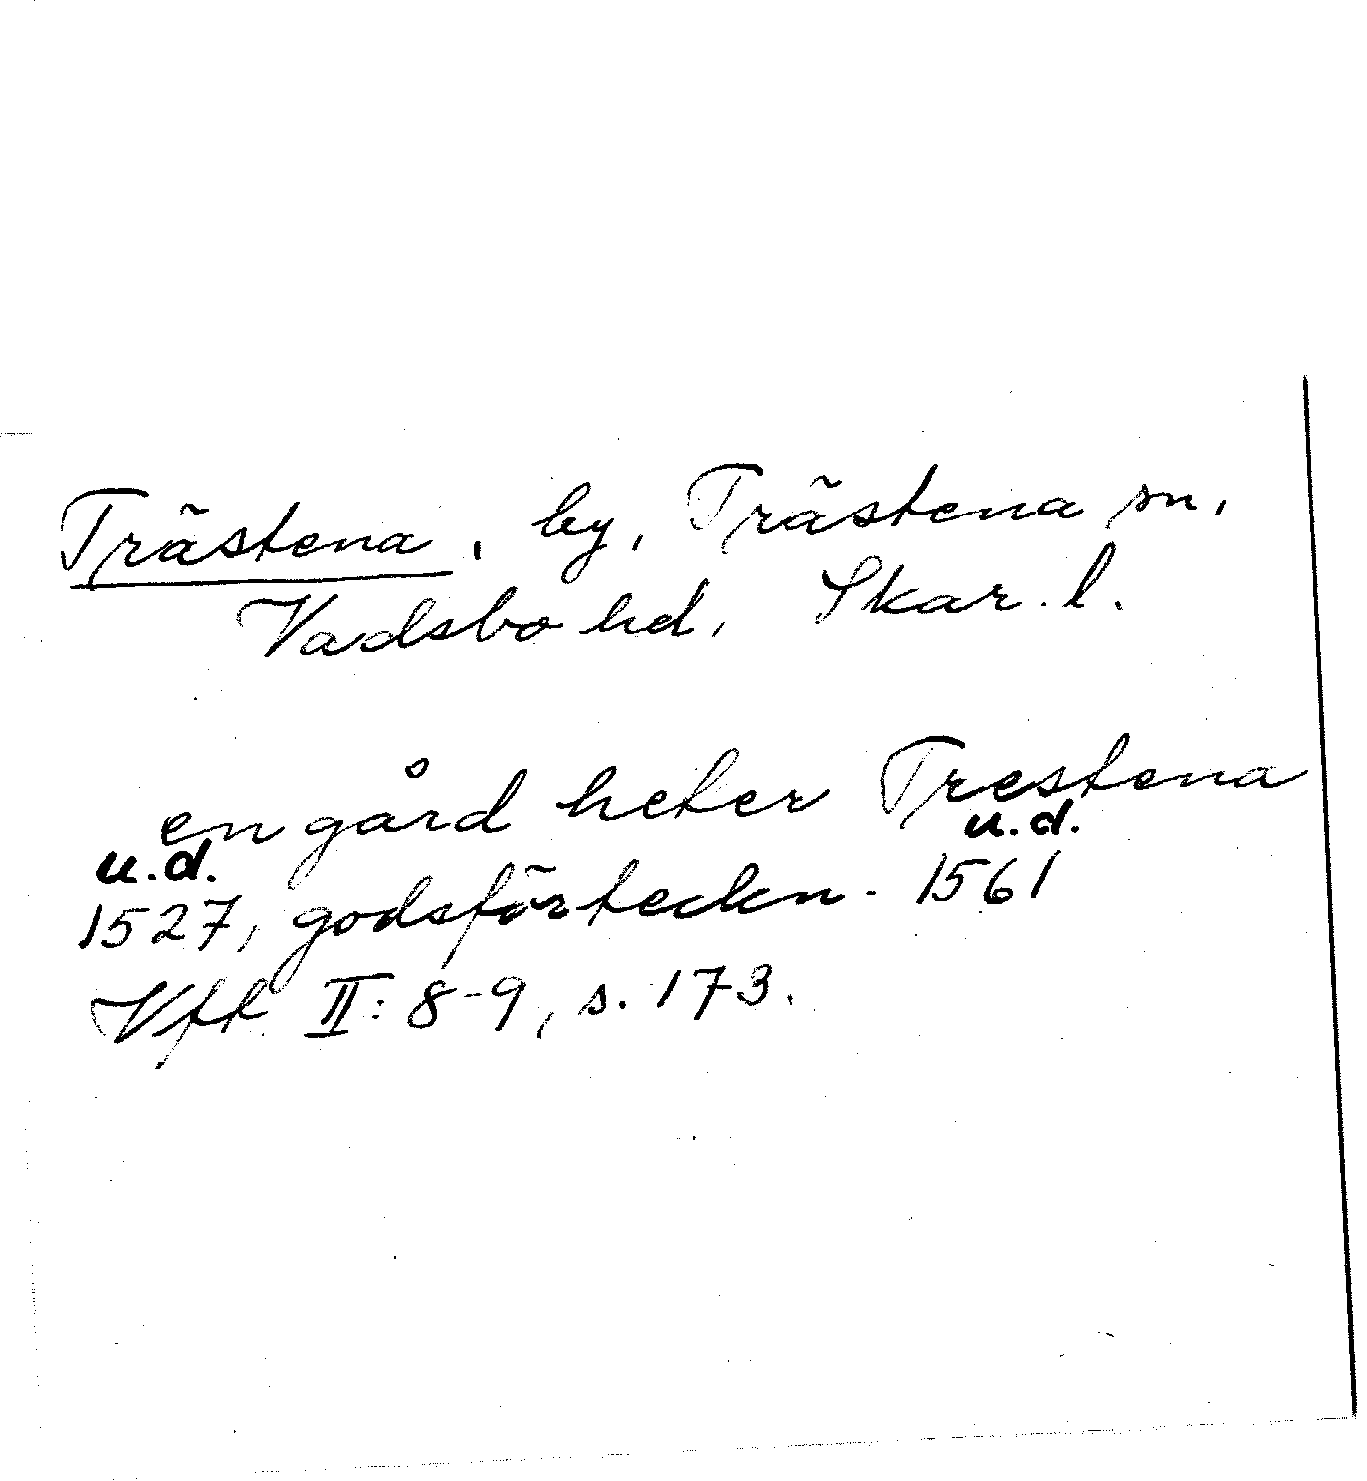 Trästena, by, Trästena sn,
Vadsbo hd, Skar. l.
en gård heter Trestena
u.d. u.d.
1527, godsförteckn. 1561
Vft II: 8-9, s. 173.